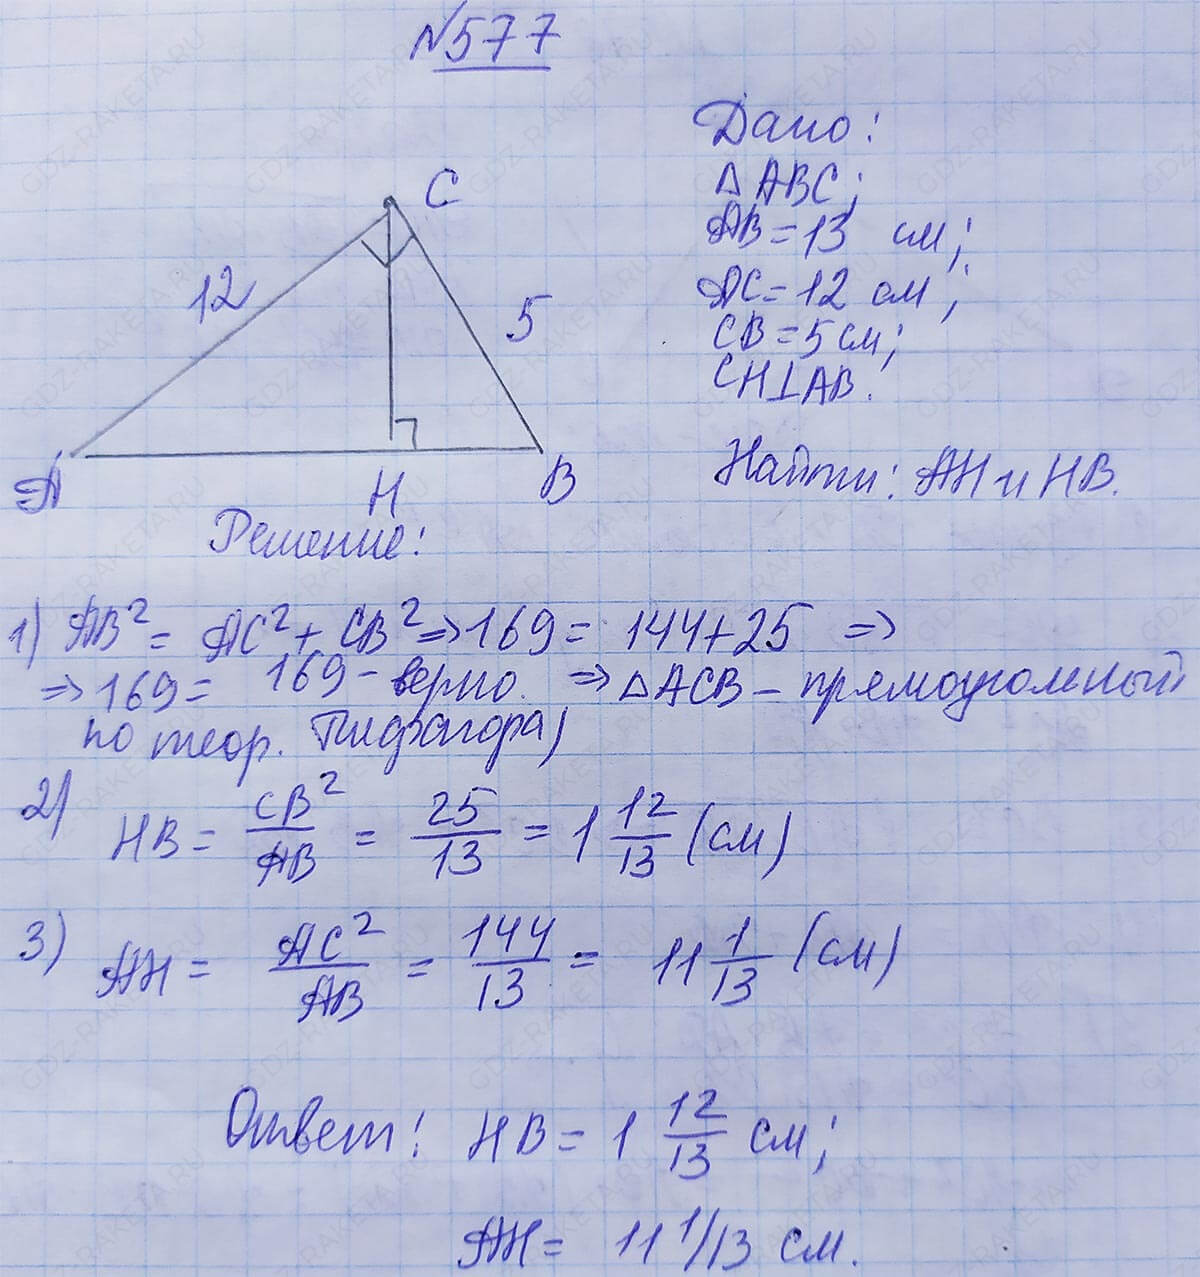 №577
Дано:
△ABC;
AB=13 см;
AC=12 см;
CB=5 см;
CH⊥AB.
Найти: AH и HB.
C
12
5
A
H
B
Решение:
1) AB² = AC² + CB² => 169 = 144+25 =>
=> 169 = 169 - верно. => △ACB - прямоугольный
по теор. Пифагора)
2) HB = CB²/AB = 25/13 = 1 12/13 (см)
3) AH = AC²/AB = 144/13 = 11 1/13 (см)
Ответ: HB = 1 12/13 см;
AH = 11 1/13 см.
GDZ-RAKETA.RU